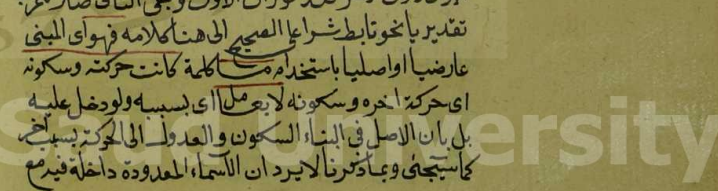 تقدير يا نحو تابط شرا على الصحيح الى هنا كلامه فهو اى المبنى
عارضيا او اصليا باستخدام ما كلمة كانت حركته وسكونه
اى حركة اخره وسكونه لا بعامل اى بسببه ولو دخل عليه
بل بان الاصل فى البناء السكون والعدول الى الحركة بسبب اخر
كما سيجئ وبما ذكرنا لا يرد ان الاسماء المعدودة داخلة فيه مع
Saud University